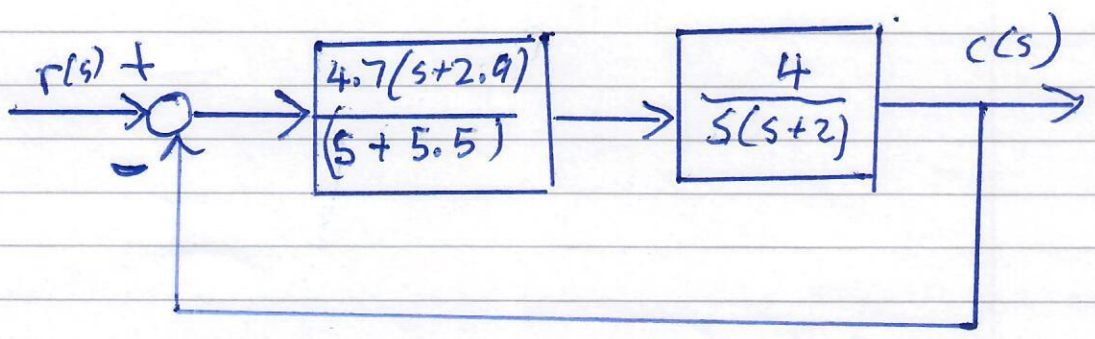 r(s) +
-
4.7(s+2.9)
(s + 5.5)
4
s(s+2)
c(s)